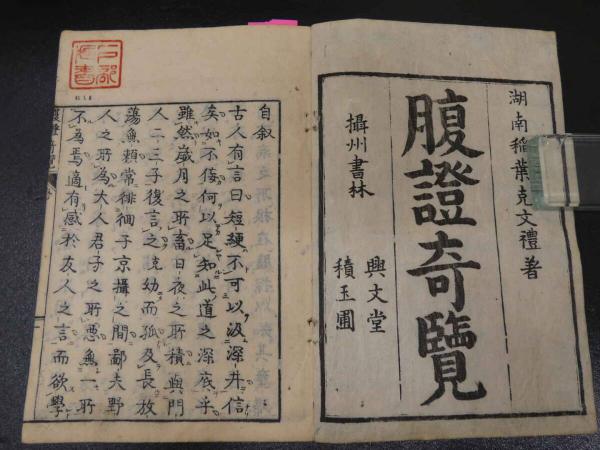 湖南稲葉克文禮著
腹證奇覽
攝州書林
興文堂
積玉圃
自叙
古人有言曰短綆不可以汲深井信
矣如不佞何以足知此道之深底乎
雖然歳月之所畜日夜之所積與門
人二三子復言之克幼而孤及長放
蕩魚頼常徘徊于京攝之間鄙夫野
人之所為大人君子之所悪魚一所
不為焉適有感於友人之言而欲學